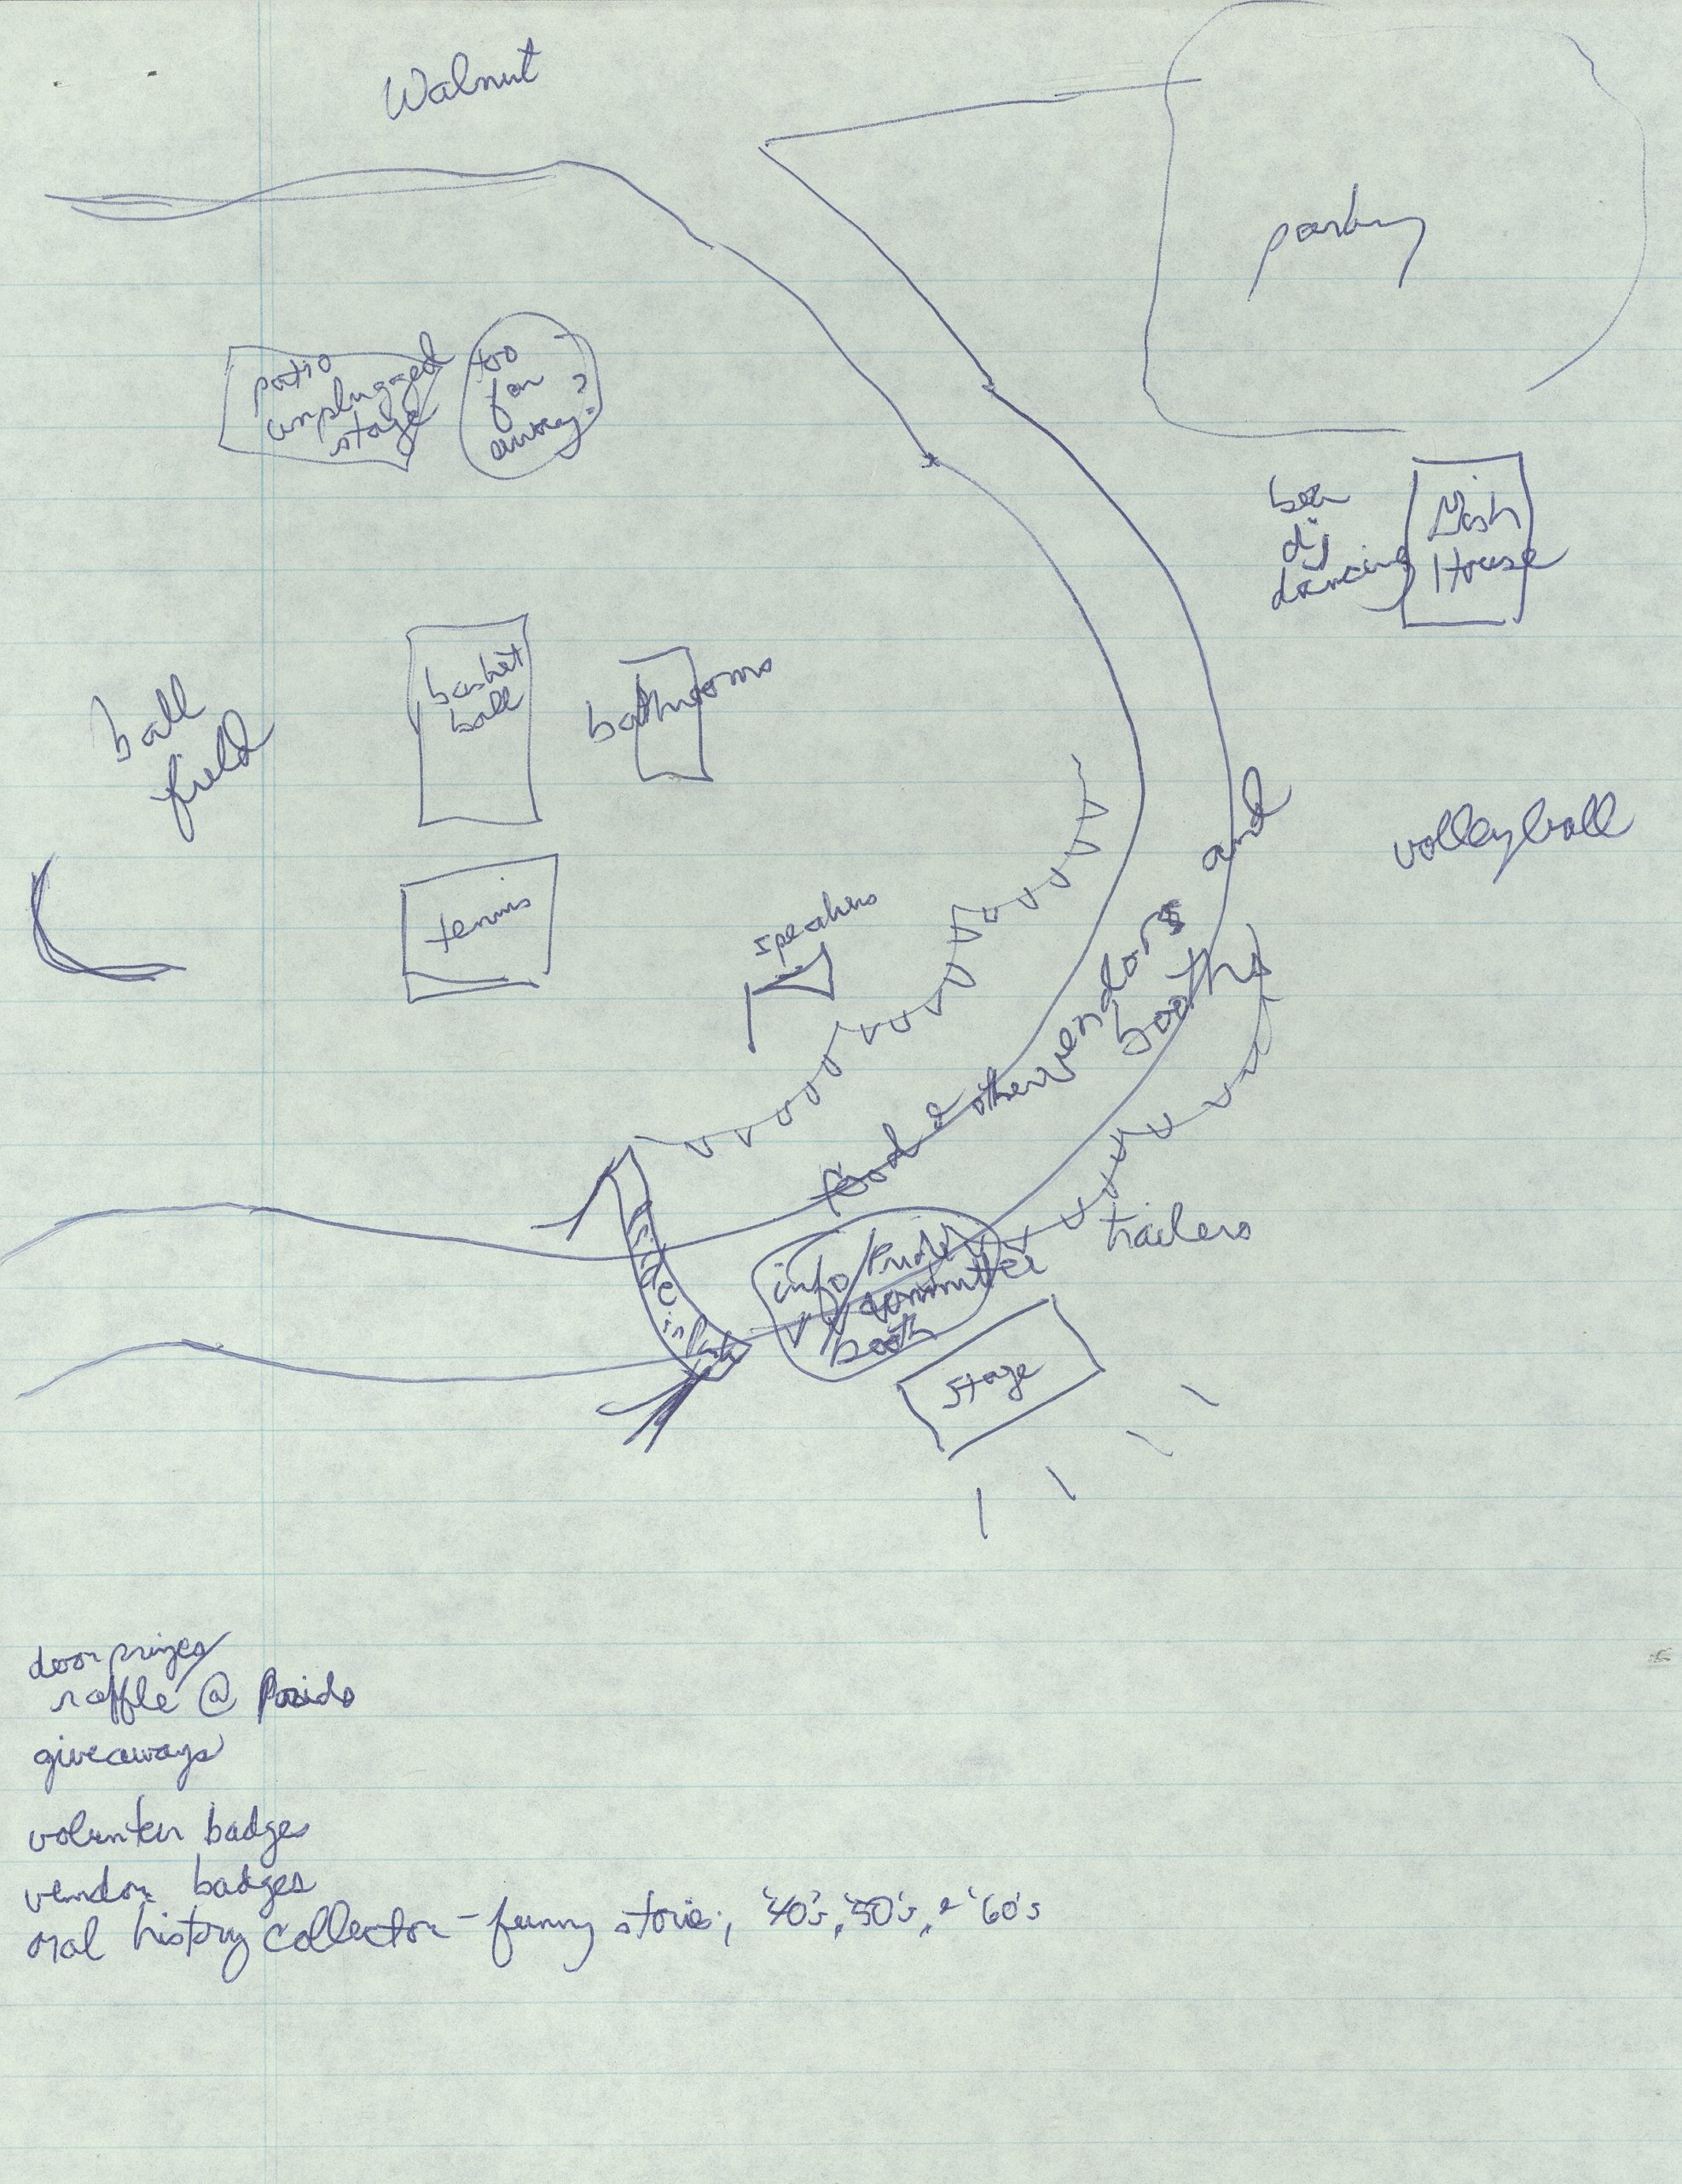 Walnut
parking
patio
unplugged
stage
too
far
away?
beer
dj
dancing
House
basket
ball
bathrooms
ball
field
volleyball
tennis
speakers
food & other vendors and
booths
trailers
info/Pride
committee
booth
stage
door prizes/
raffle @
giveaways
volunteer badges
vendor badges
oral history collector - funny stories, '40's, '50's, & '60's